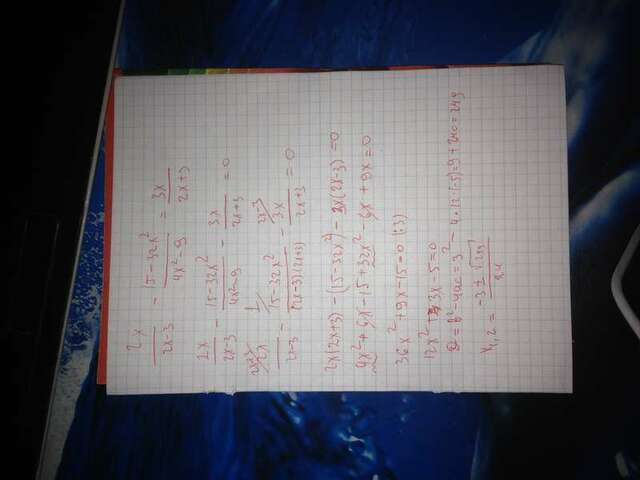 2x/(2x-3) - (15-32x²)/(4x²-9) = 3x/(2x+3)
2x/(2x-3) - (15-32x²)/(4x²-9) - 3x/(2x+3) = 0
2x+3/ 2x/(2x-3) - 1/ (15-32x²)/((2x-3)(2x+3)) - 2x-3/ 3x/(2x+3) = 0
2x(2x+3) - (15-32x²) - 3x(2x-3) = 0
4x² + 6x - 15 + 32x² - 6x + 9x = 0
36x² + 9x - 15 = 0 (:3)
12x² + 3x - 5 = 0
D = b² - 4ac = 3² - 4·12·(-5) = 9 + 240 = 249
x₁,₂ = (-3 ± √249)/24